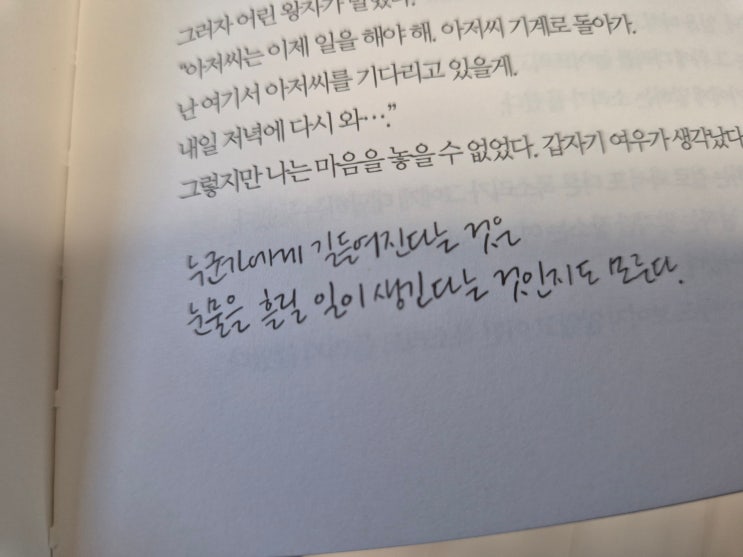 그러자 어린 왕자가 말했다.
"아저씨는 이제 일을 해야 해. 아저씨 기계로 돌아가.
난 여기서 아저씨를 기다리고 있을게.
내일 저녁에 다시 와…."
그렇지만 나는 마음을 놓을 수 없었다. 갑자기 여우가 생각났다
누군가에게 길들여진다는 것은
눈물을 흘릴 일이 생긴다는 것인지도 모른다.